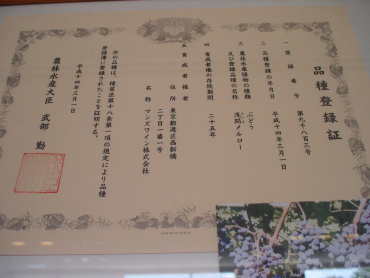 品種登録証
一 登録番号 第九千八百三号
二 品種登録の年月日 平成十四年三月一日
三 農林水産植物の種類 ぶどう
及び登録品種の名称 浅間メルロー
四 育成者権の存続期間 二十五年
五 育成者権者
住所 東京都港区西新橋
二丁目一番一号
名称 マンズワイン株式会社
次の品種は、種苗法第十八条第一項の規定により品種
登録簿に登録されたことを証明する。
平成十四年三月一日
農林水産大臣 武部 勤